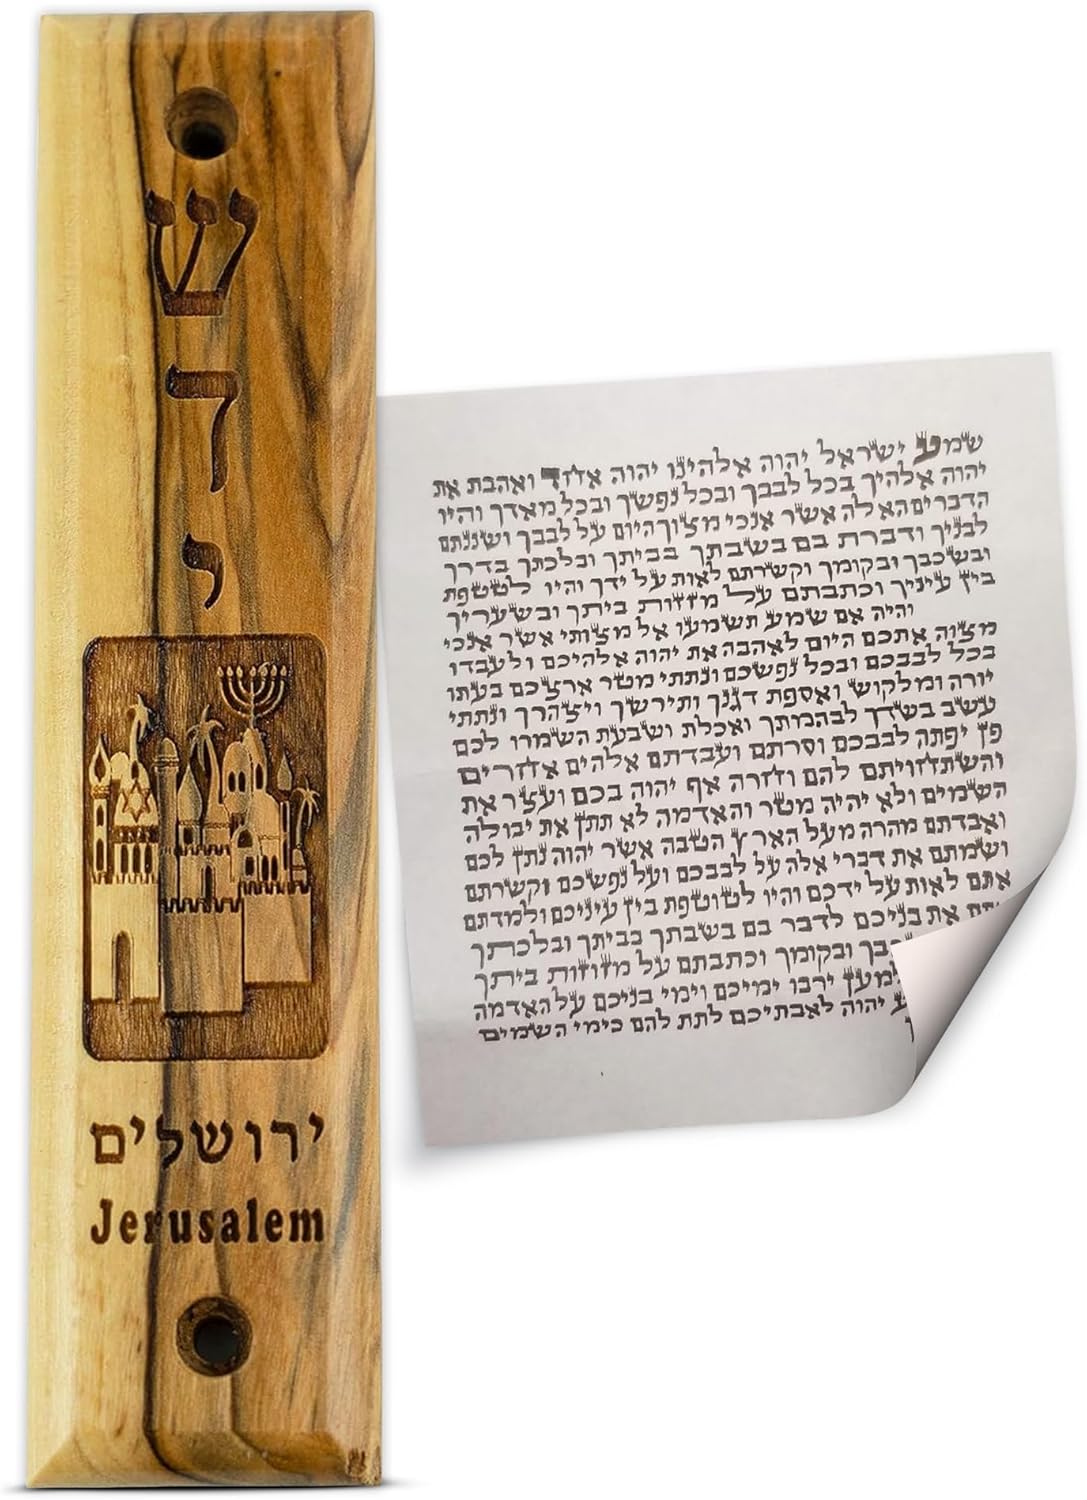 ש
ד
י
ירושלים
Jerusalem
שמע ישראל יהוה אלהינו יהוה אחד ואהבת את
יהוה אלהיך בכל לבבך ובכל נפשך ובכל מאדך והיו
הדברים האלה אשר אנכי מצוך היום על לבבך ושננתם
לבניך ודברת בם בשבתך בביתך ובלכתך בדרך
ובשכבך ובקומך וקשרתם לאות על ידך והיו לטטפת
בין עיניך וכתבתם על מזזות ביתך ובשעריך
והיה אם שמע תשמעו אל מצותי אשר אנכי
מצוה אתכם היום לאהבה את יהוה אלהיכם ולעבדו
בכל לבבכם ובכל נפשכם ונתתי מטר ארצכם בעתו
יורה ומלקוש ואספת דגנך ותירשך ויצהרך ונתתי
עשב בשדך לבהמתך ואכלת ושבעת השמרו לכם
פן יפתה לבבכם וסרתם ועבדתם אלהים אחרים
והשתחויתם להם וחרה אף יהוה בכם ועצר את
השמים ולא יהיה מטר והאדמה לא תתן את יבולה
ואבדתם מהרה מעל הארץ הטבה אשר יהוה נתן לכם
ושמתם את דברי אלה על לבבכם ועל נפשכם וקשרתם
אתם לאות על ידכם והיו לטוטפת בין עיניכם ולמדתם
את בניכם לדבר בם בשבתך בביתך ובלכתך
ובקומך וכתבתם על מזוזות ביתך
למען ירבו ימיכם וימי בניכם על האדמה
יהוה לאבתיכם לתת להם כימי השמים